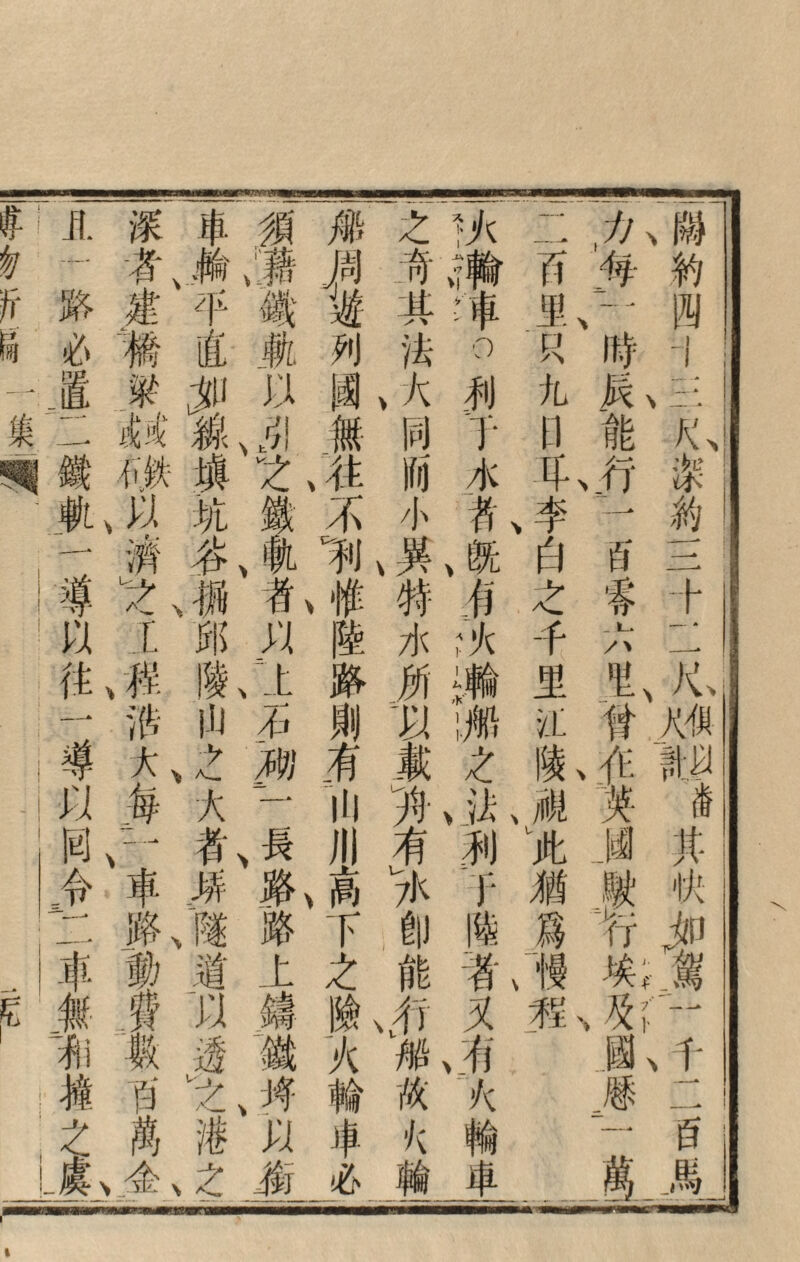 闊約四十三尺、深約三十二尺、俱以番尺計其快如駕一千二百馬
力、每一時辰、能行一百零六里、曾在英國駛行埃及國、歷一萬
二百里、只九日耳、李白之千里江陵、視此猶爲慢程、
火輪車○利于水者、既有火輪船之法、利于陸者、又有火輪車
之奇、其法大同而小異、特水所以載舟、有水卽能行船、故火輪
船周遊列國、無往不利、惟陸路則有山川高下之險、火輪車必
須藉鐵軌以引之、鐵軌者、以上石砌一長路、路上鑄鐵埒以銜
車輪、平直如線、塡坑谷、掘邱陵、山之大者、㘭隧道以透之、港之
深者、建橋梁或鉄或石以濟之、工程浩大、每一車路、動費數百萬金、
且一路必置二鐵軌、一導以往、一導以回、令二車無相撞之虞、
博物新編 一集